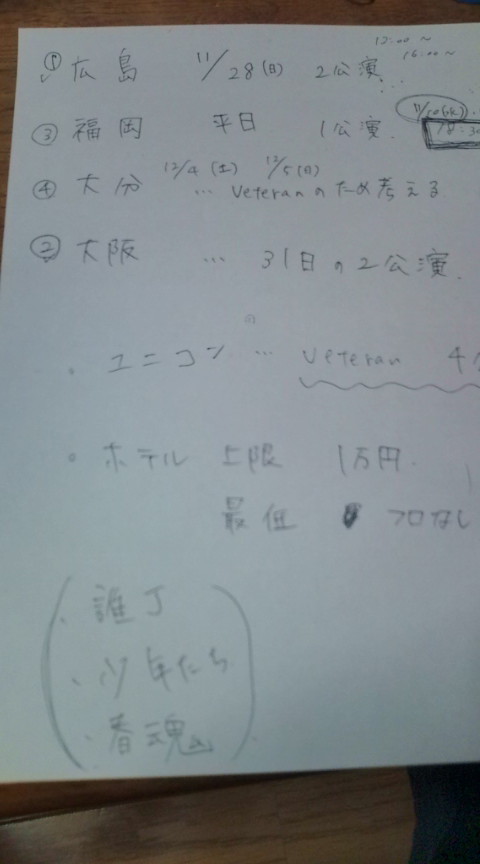 12:00〜
16:00〜
⑤ 広島 11/28(日) 2公演
③ 福岡 平日 1公演.
12/4(土) 12/5(日)
④ 大分 … Veteranのため考える
② 大阪 … 31日の2公演.
の
・ユニコン … Veteran 4
・ホテル 上限 1万円.
最低 フロなし
・誰丁
・少年たち
・番魂